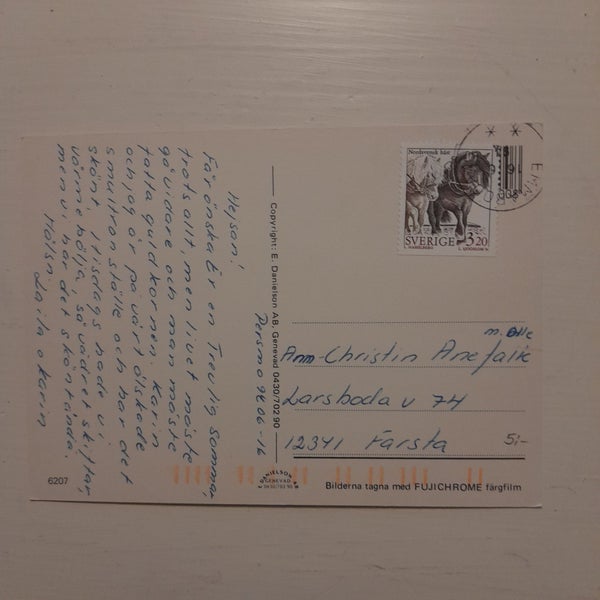 Persmo 98 06-16
Hejsan!
Får önska Er en Trevlig sommar,
trots allt, men livet måste
gå vidare och man måste
tatta guldkornen. Karin
och jag är på vårt älskade
smultronställe och har det
skönt. I tisdags hade vi
värmebölja, så vädret skiftar,
men vi har det skönt ändå.
Hälsn
Laila o Karin
Copyright: E. Danielson AB, Genevad 0430/702 90
Nordsvensk häst
SVERIGE 3.20
m. Olle
Ann-Christin Anefalk
Larsboda v 74
12341 Farsta
5:-
6207
DANIELSON
GENEVAD
0430/702 90
Bilderna tagna med FUJICHROME färgfilm